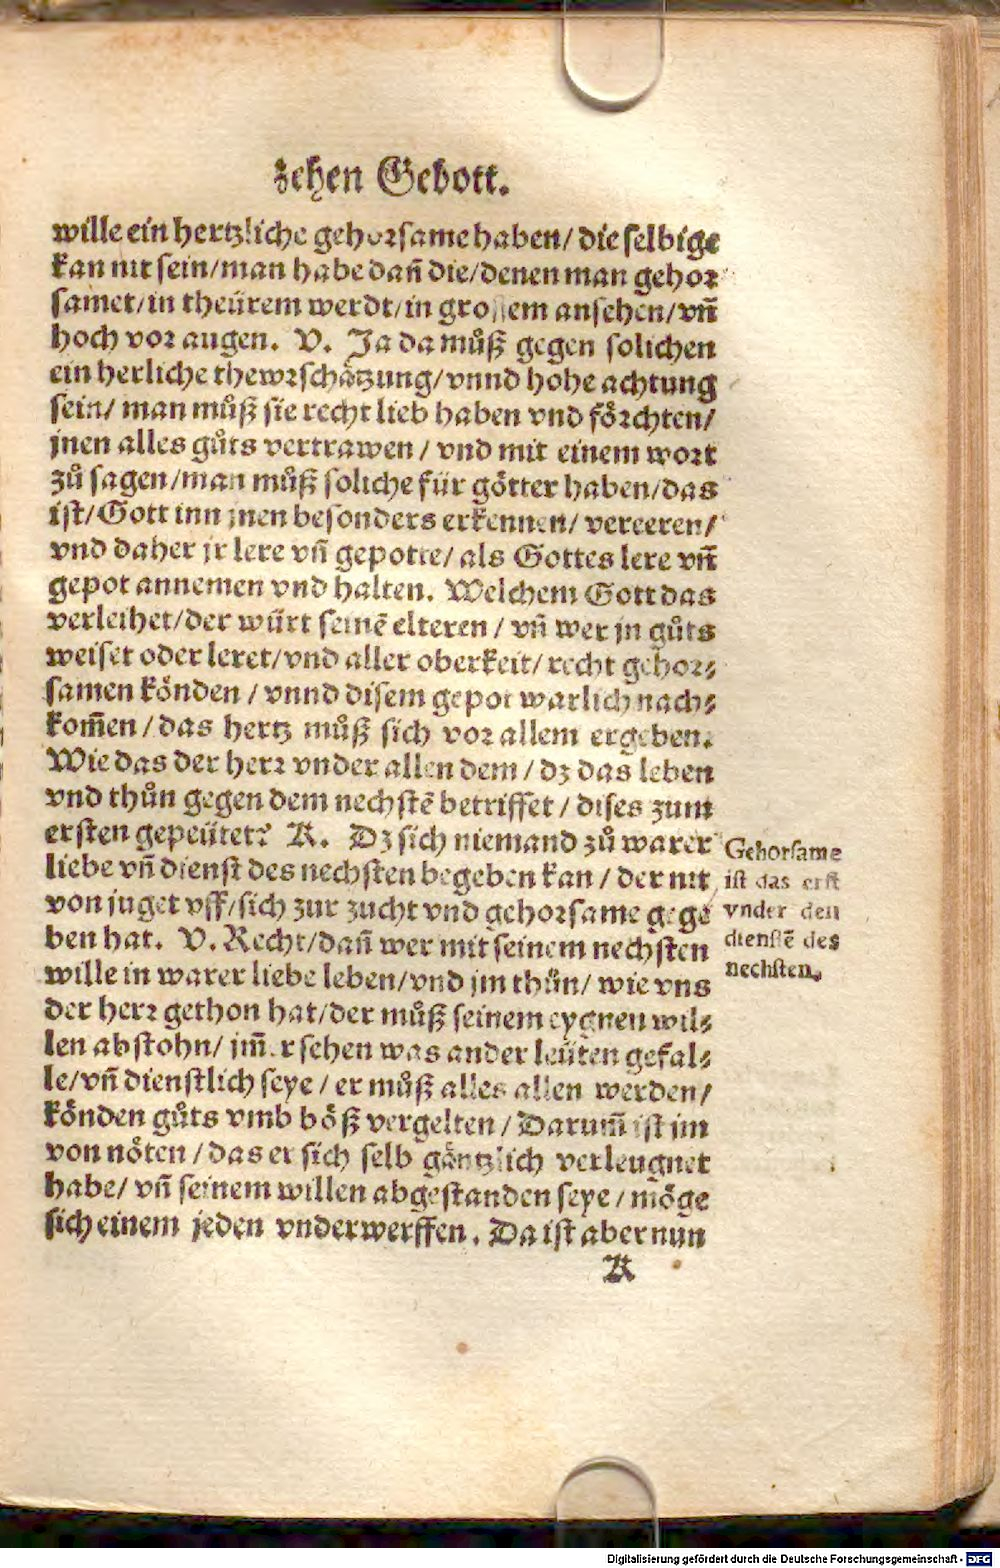 zehen Gebott.
wille ein hertzliche gehorsame haben/ die selbige
kan nit sein/man habe dañ die/denen man gehor
samet/in theürem werdt/in grossem ansehen/vñ
hoch vor augen. V. Ja da můß gegen solichen
ein herliche thewrschätzung/vnnd hohe achtung
sein/ man můß sie recht lieb haben vnd förchten/
jnen alles gůts vertrawen / vnd mit einem wort
zů sagen/man můß soliche für götter haben/das
ist/Gott inn jnen besonders erkennen/ vereeren/
vnd daher jr lere vñ gepotte/ als Gottes lere vñ
gepot annemen vnd halten. Welchem Gott das
verleihet/der würt seinē elteren / vñ wer jn gůts
weiset oder leret/vnd aller oberkeit/ recht gehor⸗
samen könden / vnnd disem gepot warlich nach⸗
kom̃en / das hertz můß sich vor allem ergeben.
Wie das der herr vnder allen dem / dz das leben
vnd thůn gegen dem nechstē betriffet / dises zum
ersten gepeütet? K. Dz sich niemand zů warer
liebe vñ dienst des nechsten begeben kan / der nit
von juget vff/sich zur zucht vnd gehorsame gege
ben hat. V. Recht/dañ wer mit seinem nechsten
wille in warer liebe leben/vnd jm thůn/ wie vns
der herr gethon hat/der můß seinem eygnen wil⸗
len abstohn/ jm̃er sehen was ander leüten gefal⸗
le/vñ dienstlich seye / er můß alles allen werden/
könden gůts vmb böß vergelten / Darum̃ ist jm
von nöten / das er sich selb gäntzlich verleugnet
habe/ vñ seinem willen abgestanden seye / möge
sich einem jeden vnderwerffen. Da ist aber nun
K
Gehorsame
ist das erst
vnder den
dienstē des
nechsten.
Digitalisierung gefördert durch die Deutsche Forschungsgemeinschaft - DFG